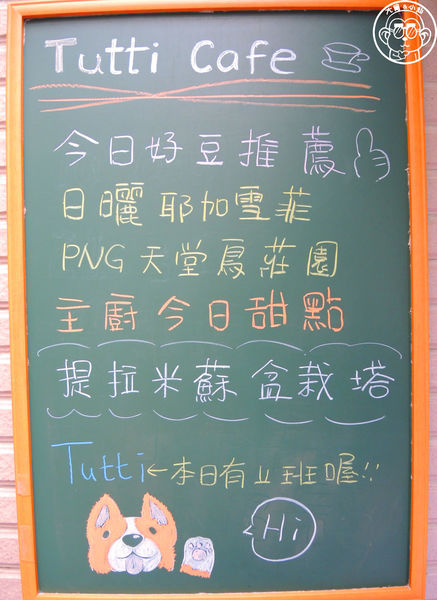 Tutti Cafe
今日好豆推薦
日曬耶加雪菲
PNG天堂鳥莊園
主廚今日甜點
提拉米蘇盆栽塔
Tutti←本日有ㄩ班喔!!
Hi